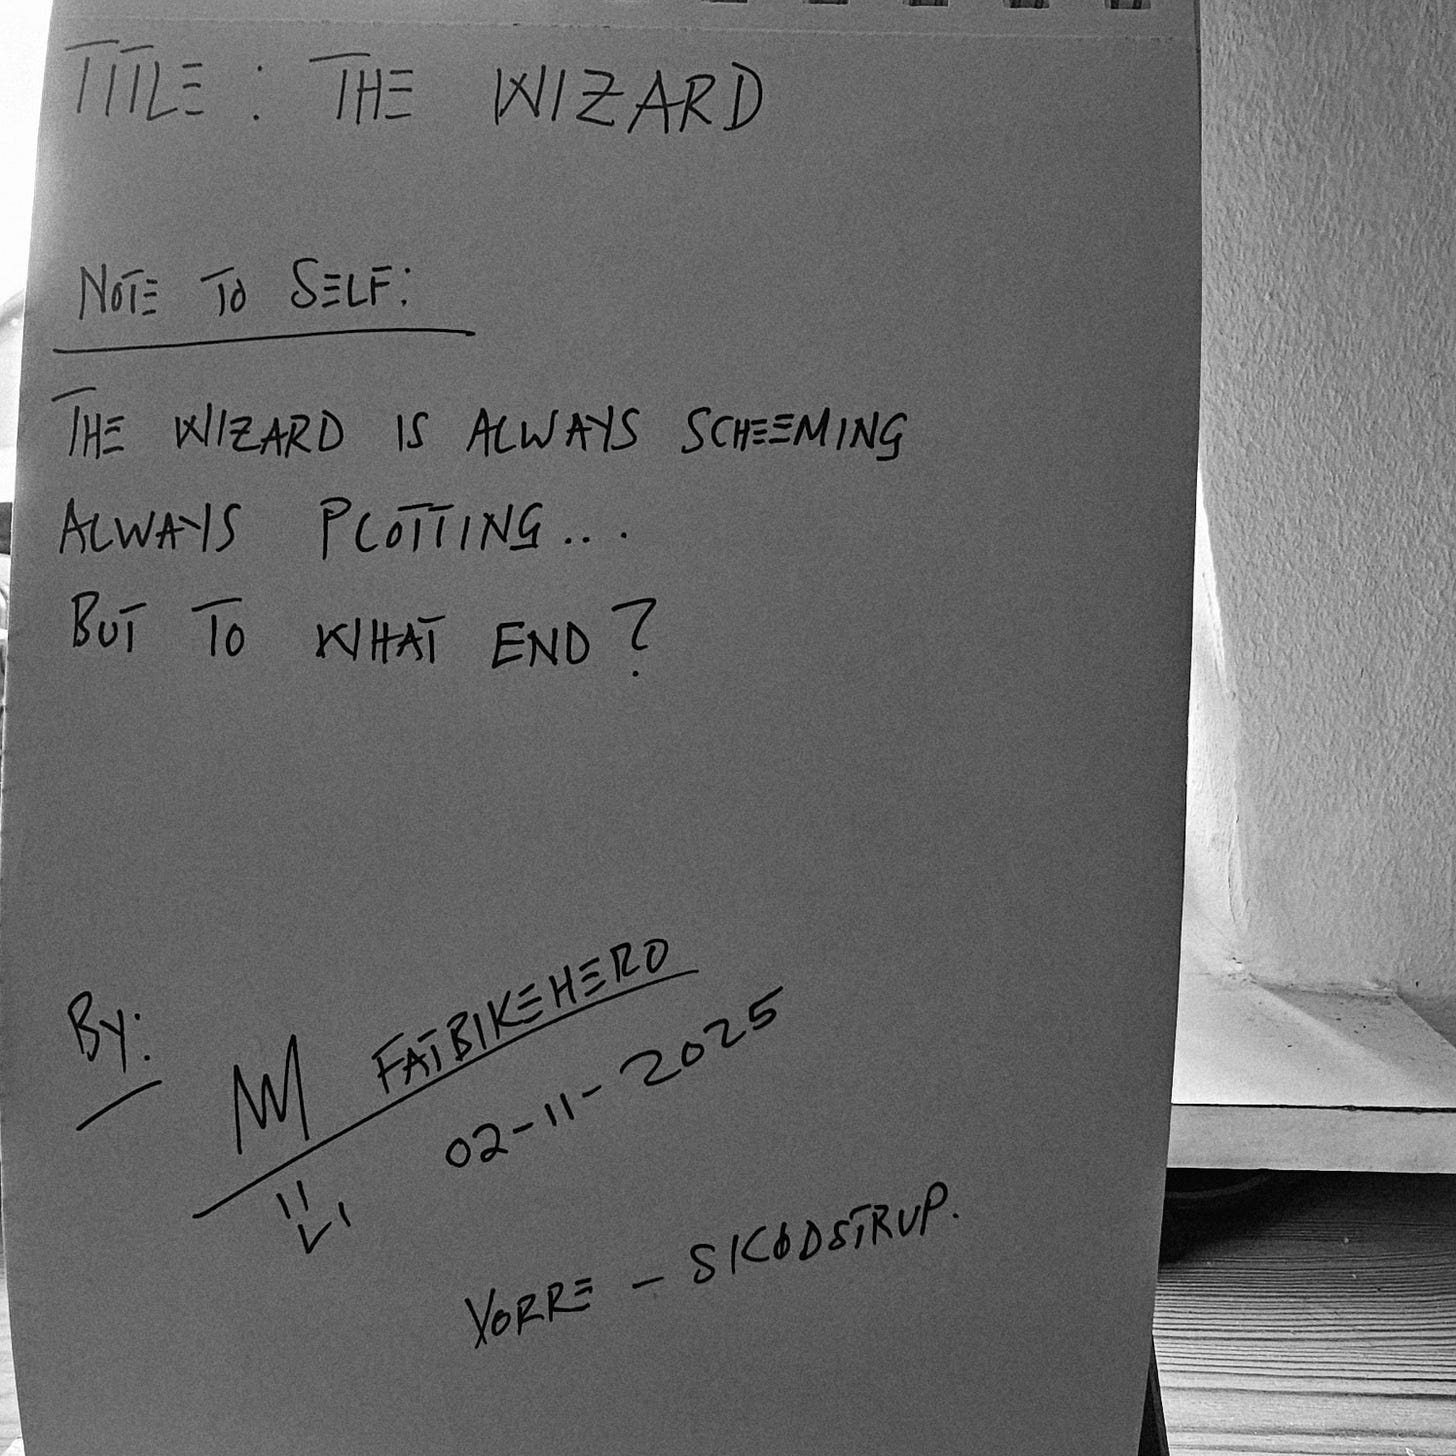 TITLE: THE WIZARD
NOTE TO SELF:
THE WIZARD IS ALWAYS SCHEEMING
ALWAYS PLOTTING...
BUT TO WHAT END?
BY: FATBIKEHERO
02-11-2025
VORRE - SKØDSTRUP.